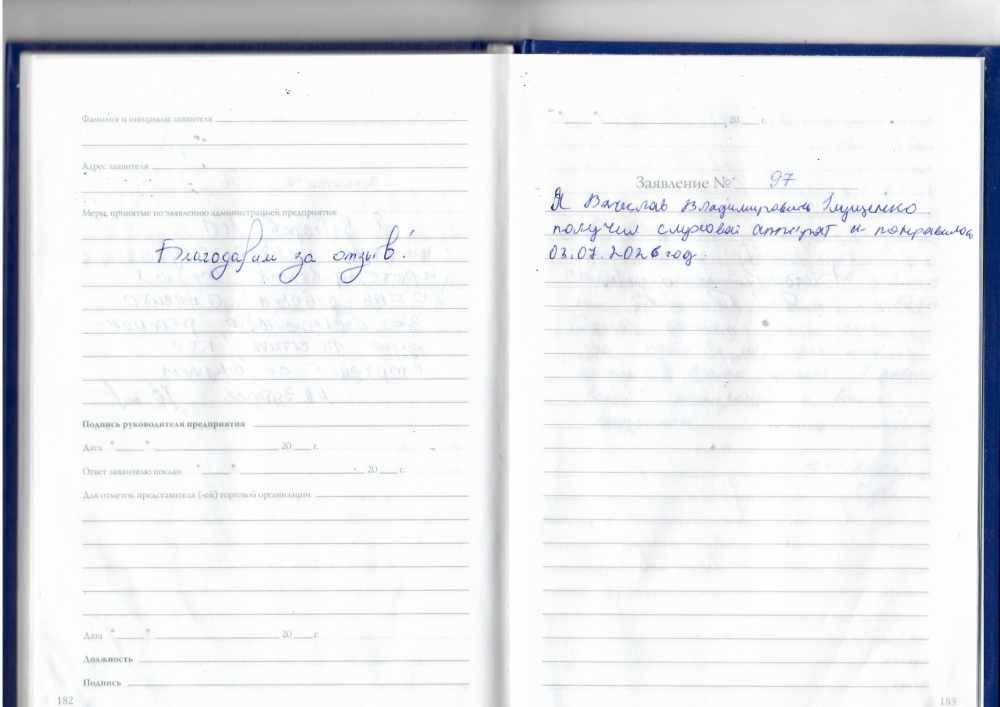 Фамилия и инициалы заявителя
Адрес заявителя
Меры, принятые по заявлению администрацией предприятия
Благодарим за отзыв!
Подпись руководителя предприятия
Дата "___" ___ 20 ___ г.
Ответ заявителю послан "___" ___ 20 ___ г.
Для отметок представителя (-ей) торговой организации
Дата "___" ___ 20 ___ г.
Должность
Подпись
182
"___" ___ 20 ___ г.
Заявление № 97
Я Вячеслав Владимирович
получил слуховой аппарат и понравилось
03.07.2026 год.
183